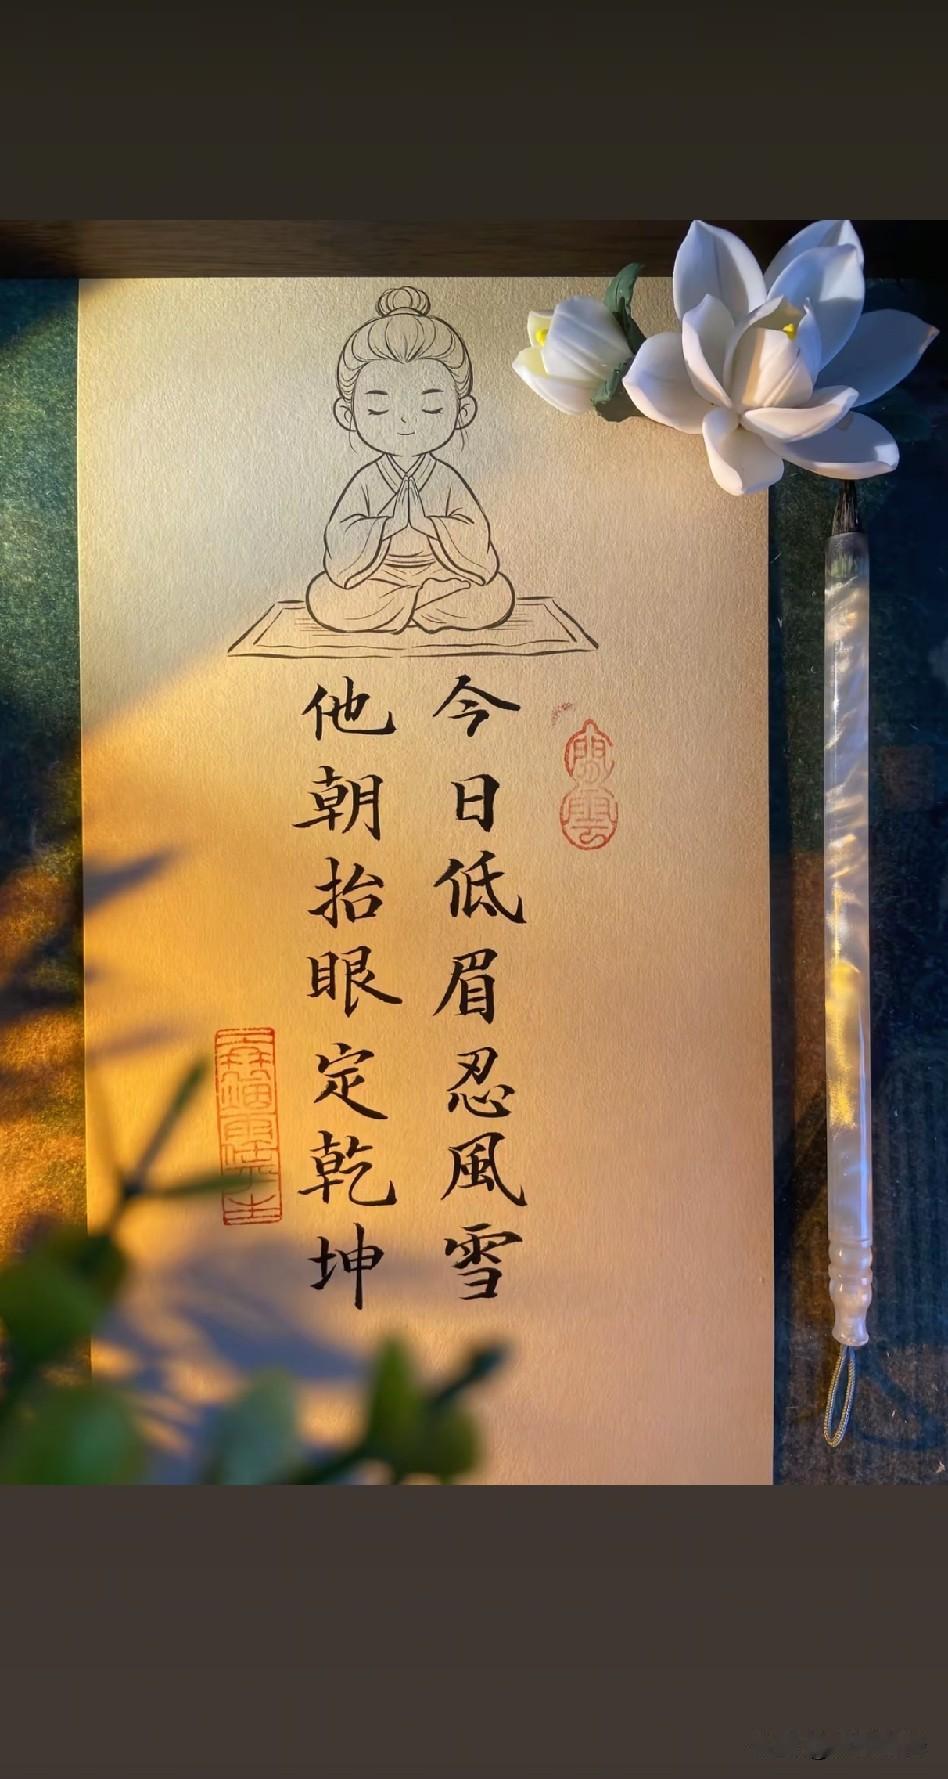 今日低眉忍風雪
他朝抬眼定乾坤